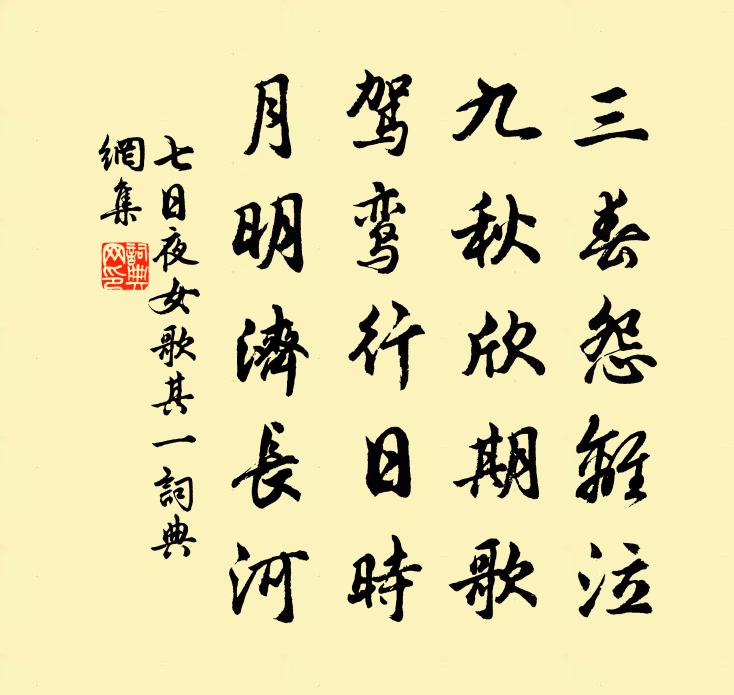 三春怨離泣
九秋欣期歌
驾鸾行日時
月明濟長河
七日夜女歌其一詞典
網集
詞典網印